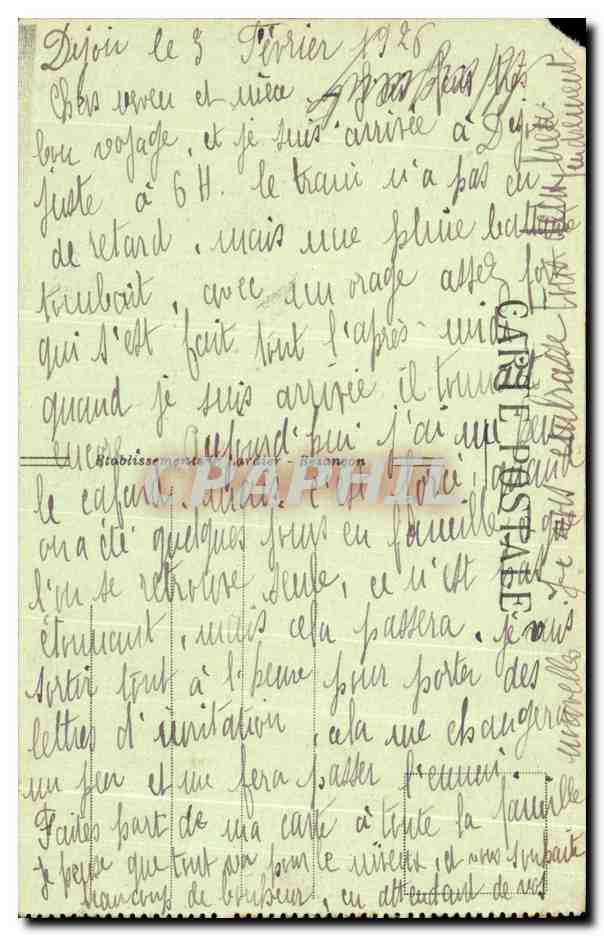 Dijon le 3 Février 1926
Chers neveu et nièce
bon voyage, et je suis arrivée à Dijon
juste à 6 H. le train n'a pas eu
de retard, mais une pluie battante
tombait, avec un orage assez fort
qui s'est fait tout l'après-midi
quand je suis arrivée il tonnait
encore. Aujourd'hui j'ai un peu
le cafard, mais c'est forcé, quand
on a été quelques jours en famille et que
l'on se retrouve seule, ce n'est pas
étonnant, mais cela passera, je vais
sortir tout à l'heure pour porter des
lettres d'invitation, cela me changera
un peu et me fera passer l'ennui
Faites part de ma carte à toute la famille
Je pense que tout va pour le mieux, et vous souhaite
beaucoup de bonheur, en attendant de vos
nouvelles Je vous embrasse tous deux bien
tendrement
CARTE POSTALE
Etablissements C. Lardier - Besançon
CPAPHIL